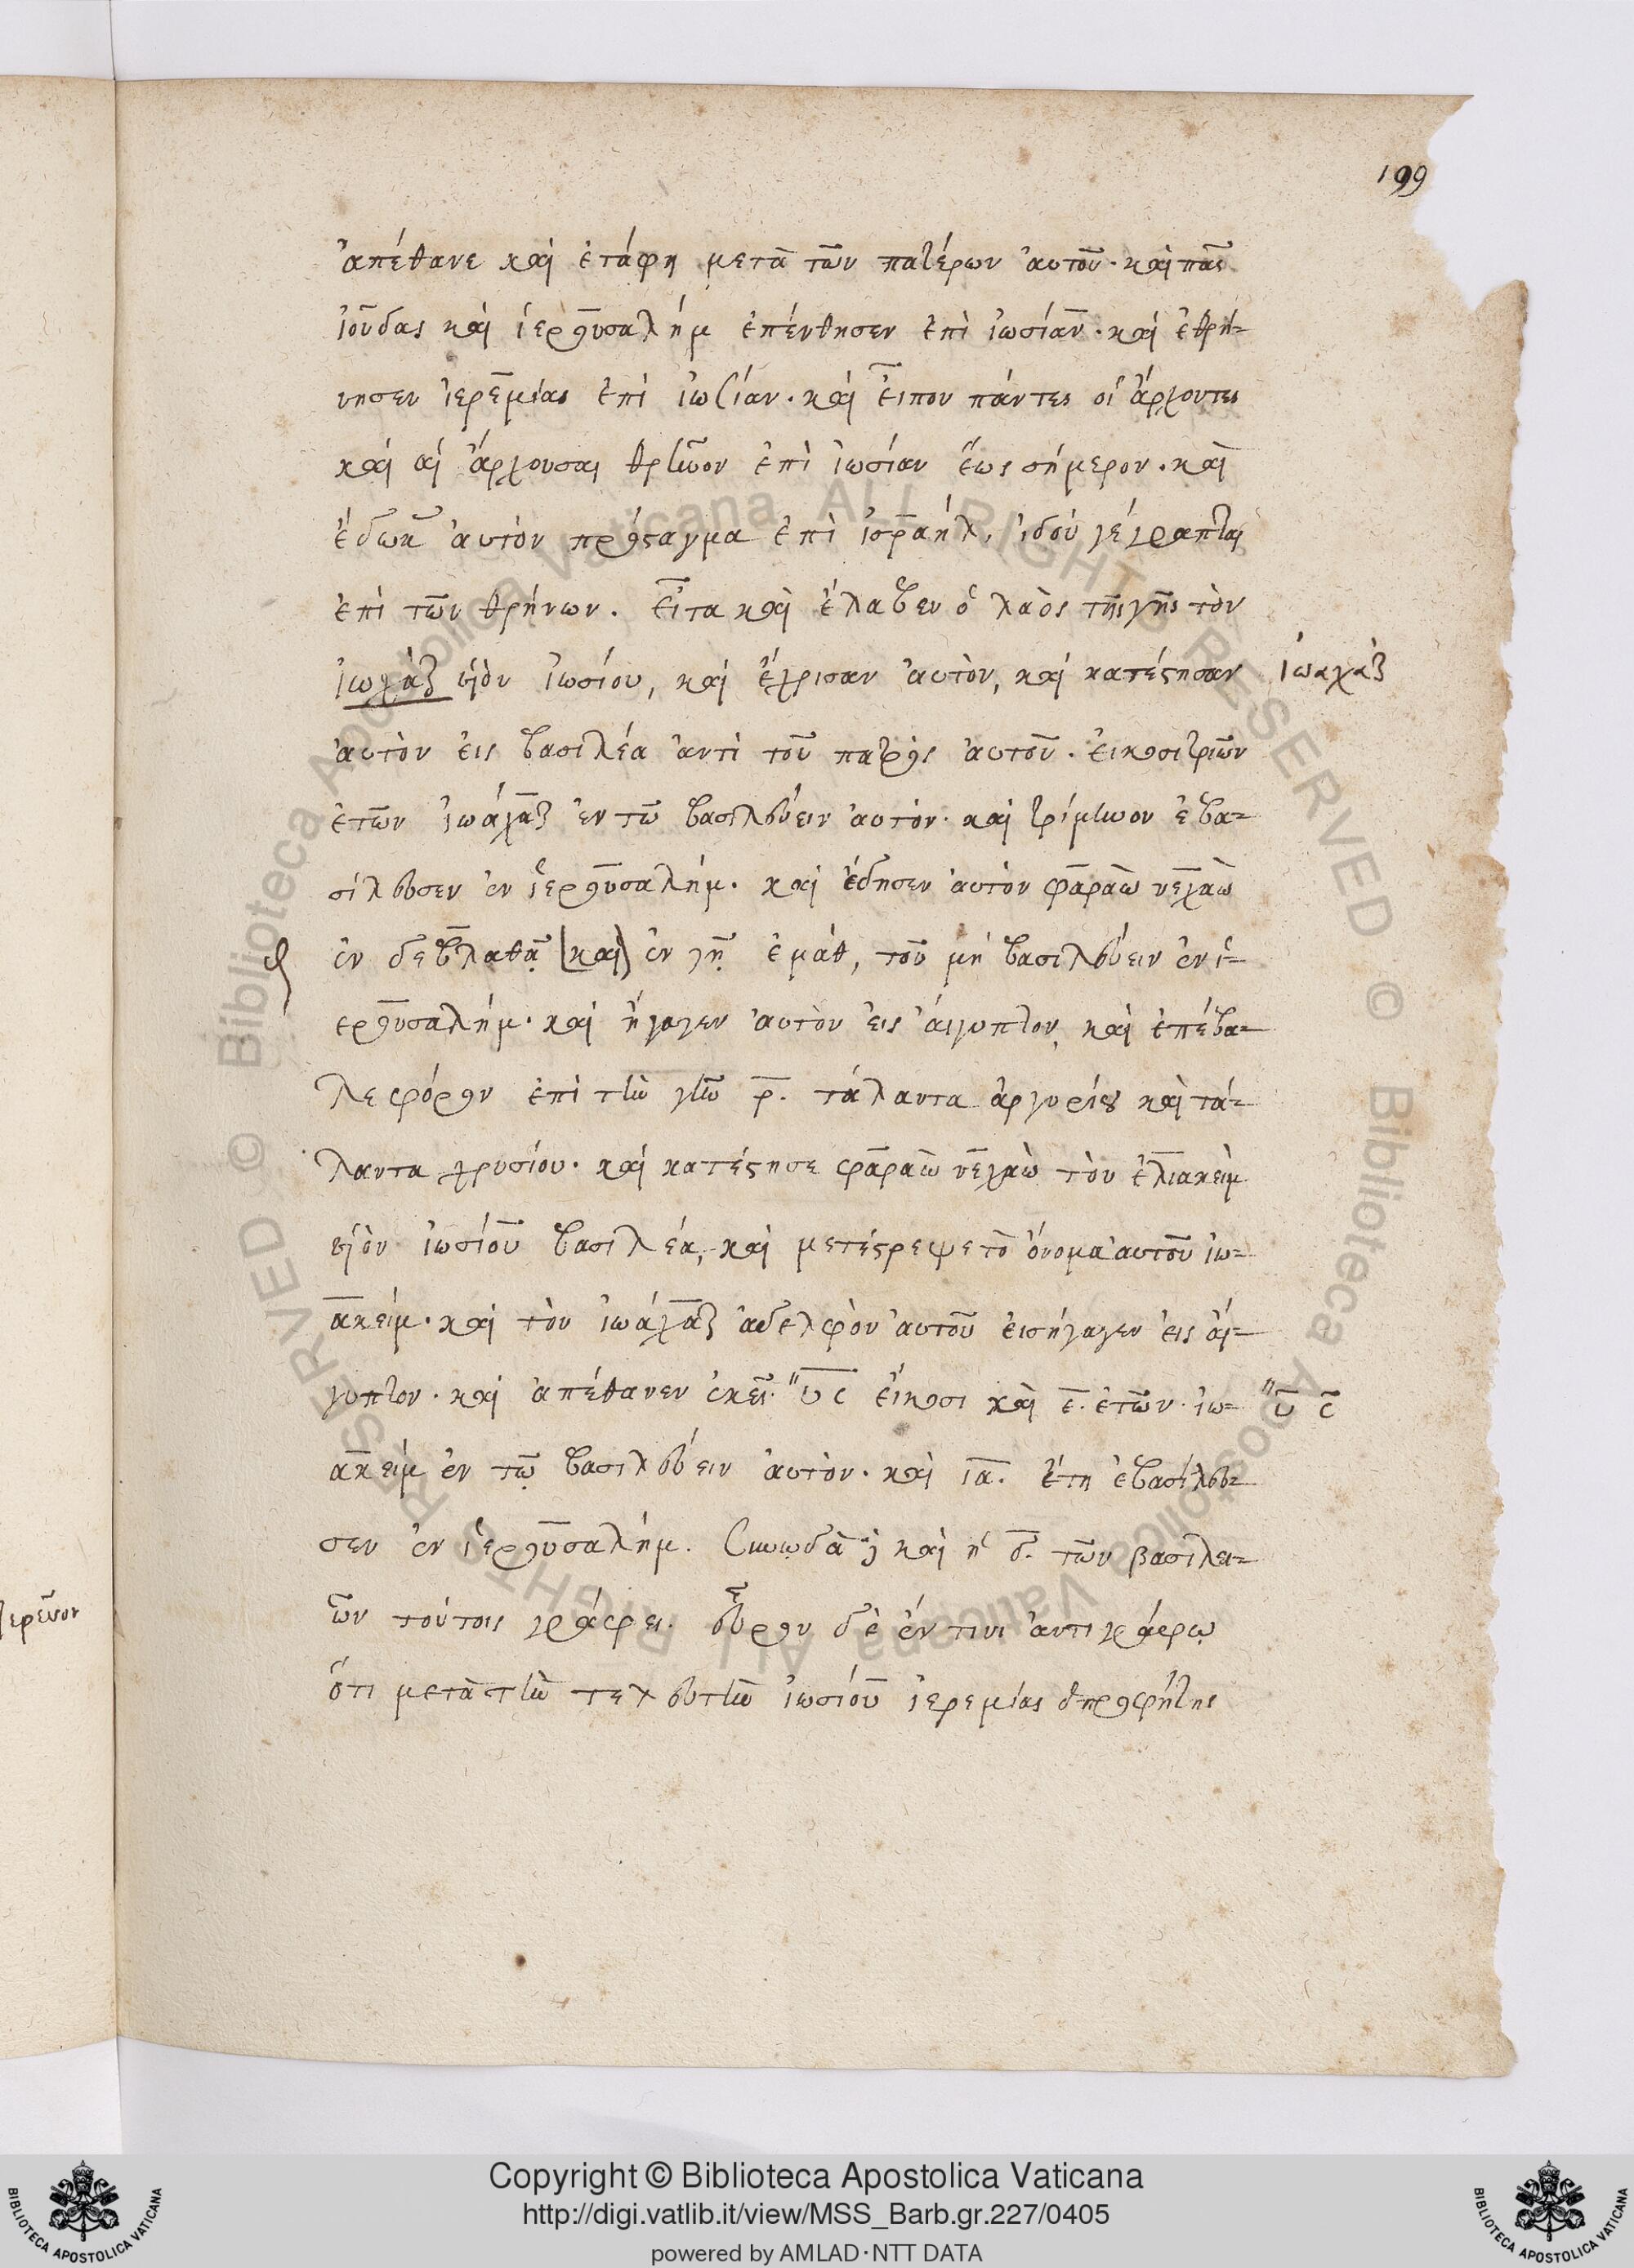 199
ἀπέθανε καὶ ἐτάφη μετὰ τῶν πατέρων αὐτοῦ· καὶ πᾶς
ἰούδας καὶ ἱερουσαλήμ ἐπένθησεν ἐπὶ ἰωσίαν· καὶ ἐθρή-
νησεν ἱερεμίας ἐπὶ ἰωσίαν· καὶ εἶπον πάντες οἱ ἄρχοντες
καὶ αἱ ἄρχουσαι θρῆνον ἐπὶ ἰωσίαν ἕως σήμερον· καὶ
ἔδωκαν αὐτὸν πρόσταγμα ἐπὶ ἰσραήλ, ἰδού γέγραπται
ἐπὶ τῶν θρήνων. εἶτα καὶ ἔλαβεν ὁ λαὸς τῆς γῆς τὸν
ἰωχὰζ υἱὸν ἰωσίου, καὶ ἔχρισαν αὐτὸν, καὶ κατέστησαν ἰωαχὰζ
αὐτὸν εἰς βασιλέα ἀντὶ τοῦ πατρὸς αὐτοῦ. εἰκοσιτριῶν
ἐτῶν ἰωάχαζ ἐν τῷ βασιλεύειν αὐτὸν· καὶ τρίμηνον ἐβα-
σίλευσεν ἐν ἱερουσαλήμ. καὶ ἔδησεν αὐτὸν φαραὼ νεχαὼ
ἐν δεβλαθᾷ (καὶ) ἐν γῇ ἐμάθ, τοῦ μὴ βασιλεύειν ἐν ἱ-
ερουσαλήμ· καὶ ἤγαγεν αὐτὸν εἰς αἴγυπτον, καὶ ἐπέβα-
λε φόρον ἐπὶ τὴν γῆν ρ. τάλαντα ἀργυρίου καὶ τά-
λαντα χρυσίου· καὶ κατέστησε φαραὼ νεχαὼ τὸν ἐλιακεὶμ
υἱὸν ἰωσίου βασιλέα, καὶ μετέστρεψε τὸ ὄνομα αὐτοῦ ἰω-
ακείμ· καὶ τὸν ἰωάχαζ ἀδελφὸν αὐτοῦ εἰσήγαγεν εἰς αἴ-
γυπτον· καὶ ἀπέθανεν ἐκεῖ. υϛ εἴκοσι καὶ ε. ἐτῶν ἰω- υ ϛ
ακείμ ἐν τῷ βασιλεύειν αὐτὸν· καὶ ια. ἔτη ἐβασίλευ-
σεν ἐν ἱερουσαλήμ. Συνῳδὰ καὶ ἡ δ. τῶν βασιλει-
ῶν τούτοις γράφει. εὗρον δὲ ἔν τινι ἀντιγράφῳ
ὅτι μετὰ τὴν τελευτὴν ἰωσίου ἱερεμίας ὁ προφήτης
Copyright © Biblioteca Apostolica Vaticana
http://digi.vatlib.it/view/MSS_Barb.gr.227/0405
powered by AMLAD·NTT DATA